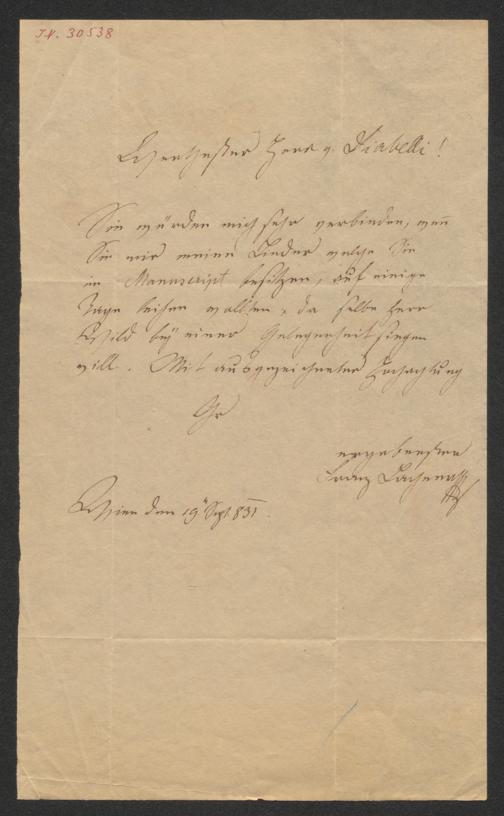 I.N. 30538
Werthester Herr v. Diabelli!
Sie würden mich sehr verbinden, wen̄
Sie mir meine Lieder welche Sie
im Manuscript besitzen, auf einige
Tage leihen wollten, da selbe Herr
Wild bey einer Gelegenheit singen
will. Mit ausgezeichneter Hochachtung
Ihr
ergebenster
Franz Lachner
Wien den 19 Sept 831.